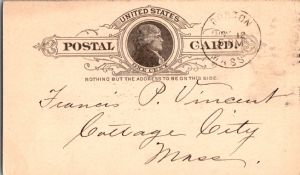 UNITED STATES
POSTAL CARD
ONE CENT
NOTHING BUT THE ADDRESS TO BE ON THIS SIDE.
12
MASS
Francis P. Vincent
Cottage City
Mass.